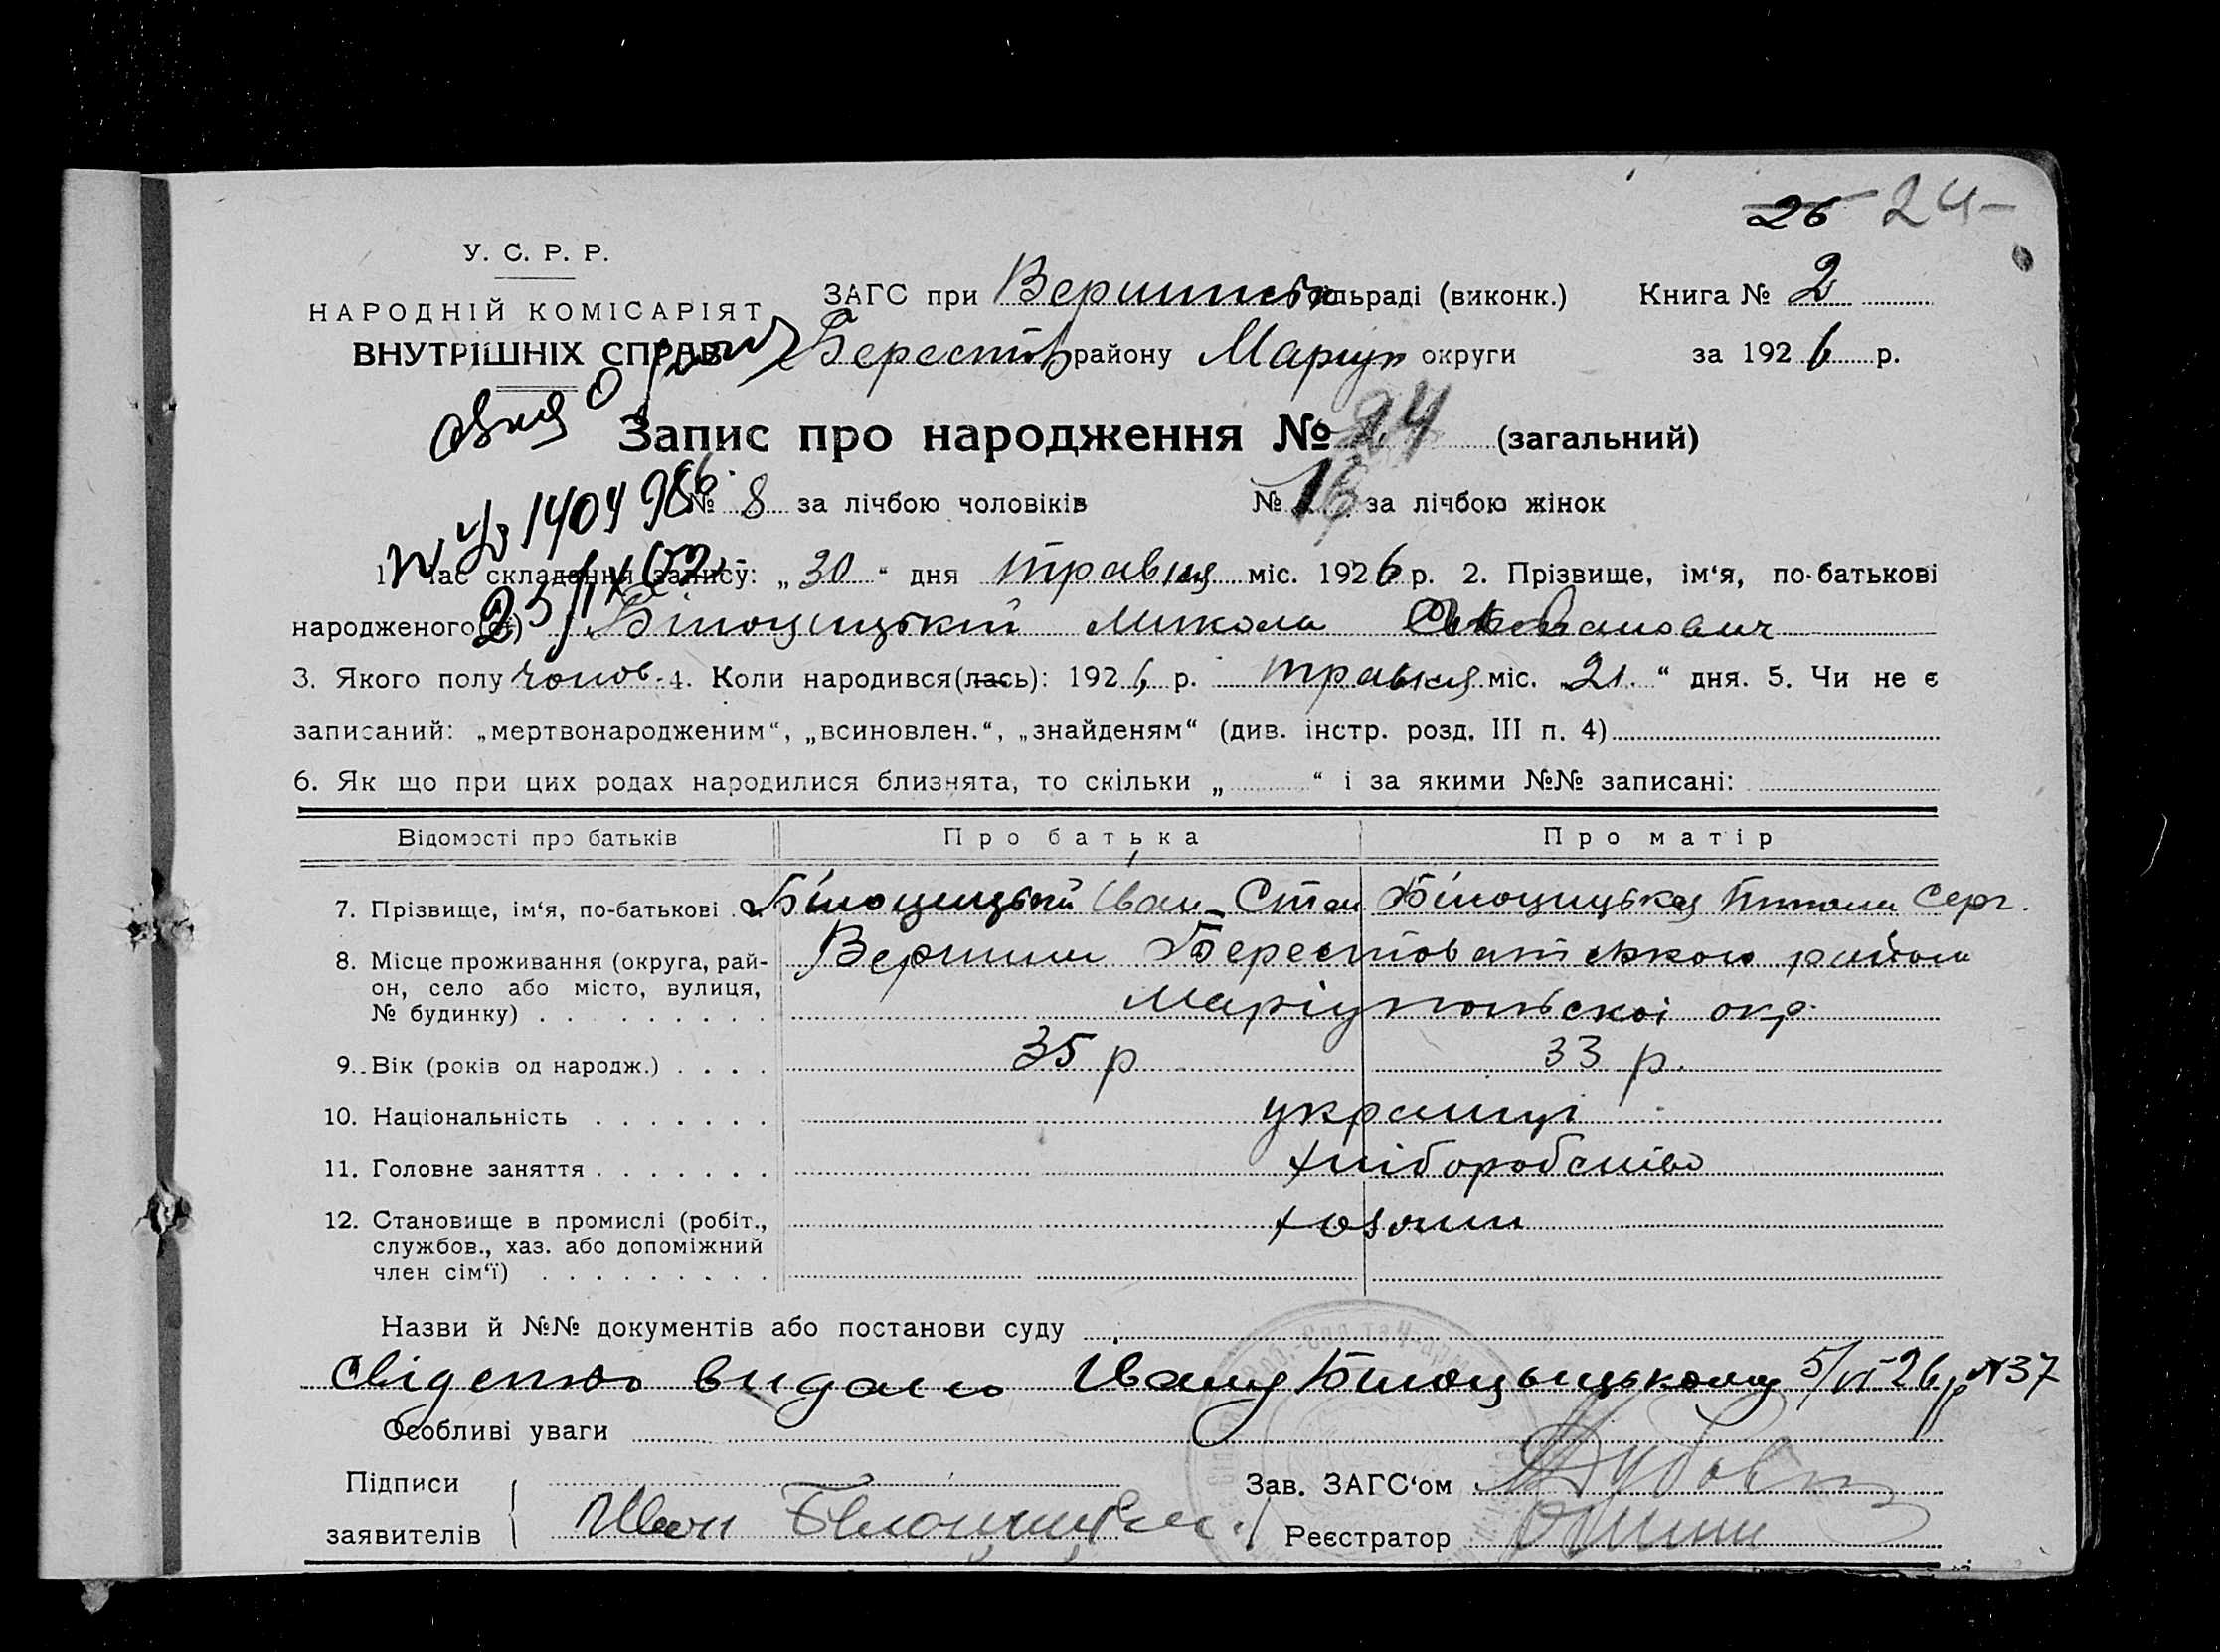 26 24
У. С. Р. Р.
НАРОДНІЙ КОМІСАРІЯТ
ВНУТРІШНІХ СПРАВ
ЗАГС при Вершинськ сільраді (виконк.) Книга № 2
Берестів району Маріуп округи за 1926 р.
Запис про народження № 24 (загальний)
№ 8 за лічбою чоловіків № 16 за лічбою жінок
1. Час складання запису: „30“ дня травня міс. 1926 р. 2. Прізвище, ім‘я, по-батькові
народженого(ої) Білоцицький Микола
3. Якого полу чолов. 4. Коли народився(лась): 1926 р. травня міс. „21“ дня. 5. Чи не є
записаний: „мертвонародженим“, „всиновлен.“, „знайденям“ (див. інстр. розд. III п. 4)
6. Як що при цих родах народилися близнята, то скільки „ “ і за якими №№ записані:
Відомості про батьків Про батька Про матір
7. Прізвище, ім‘я, по-батькові Білоцицький Іван Степ Білоцицька Серг.
8. Місце проживання (округа, рай-
он, село або місто, вулиця,
№ будинку)
Вершини Берестоватського району
Маріупольскоі окр.
9. Вік (років од народж.) 35 р 33 р.
10. Національність українці
11. Головне заняття хліборобство
12. Становище в промислі (робіт.,
службов., хаз. або допоміжний
член сім‘ї)
хозяини
Назви й №№ документів або постанови суду
свідецтво видано Івану Білоцьицькому 5/VI 26 р №37
Особливі уваги
Підписи
заявителів
Иван
Зав. ЗАГС‘ом
Реєстратор